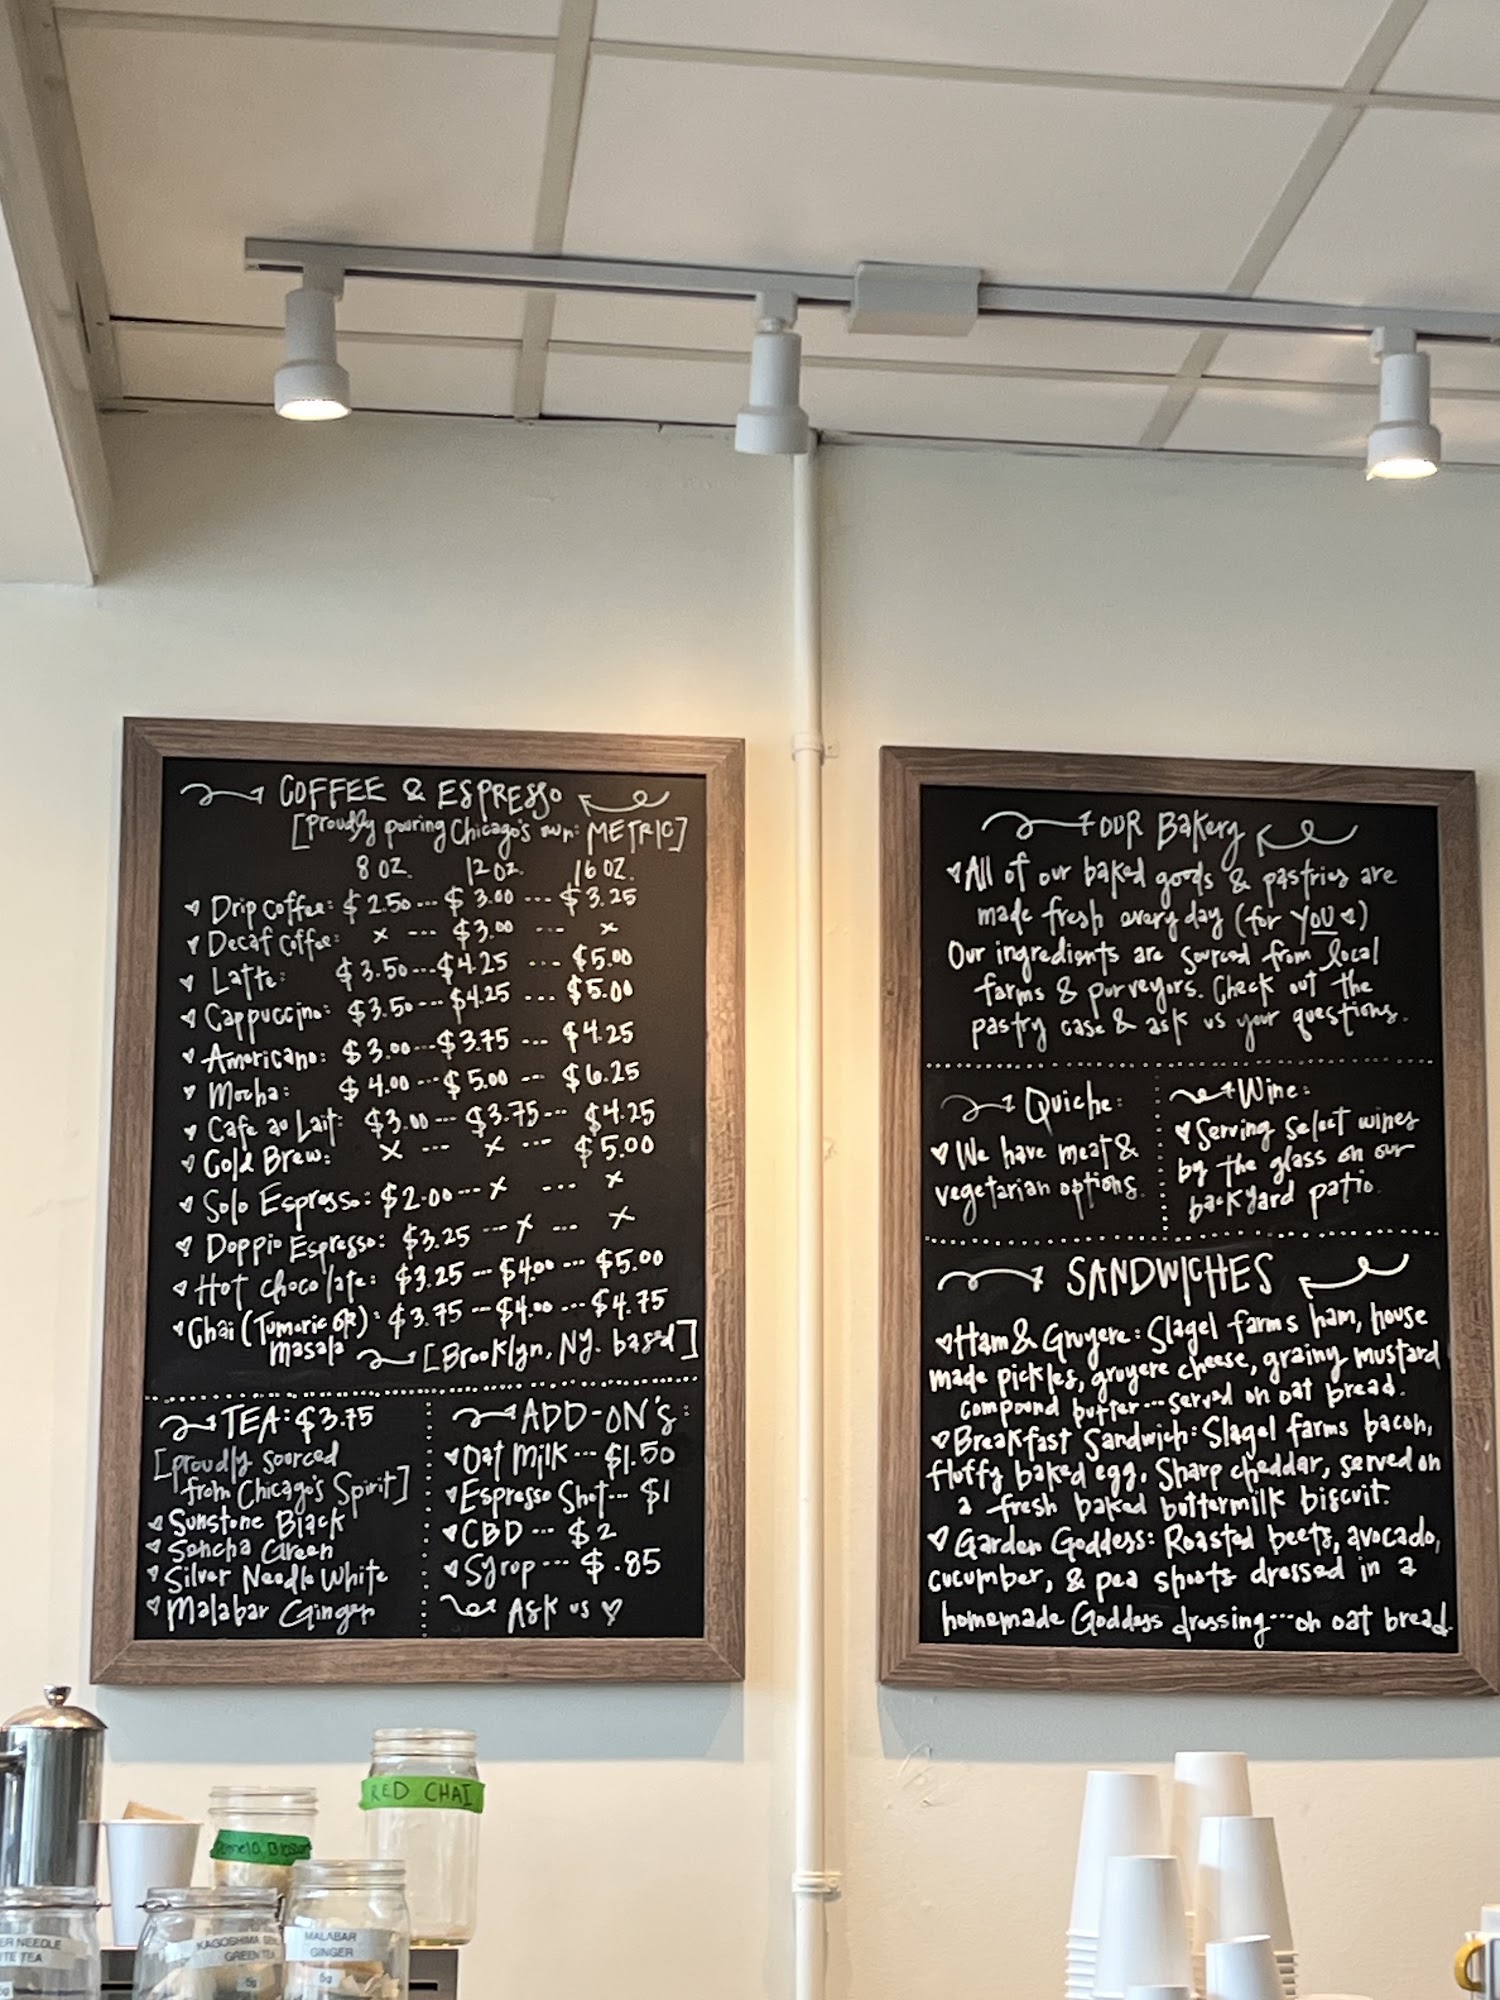 COFFEE & ESPRESSO
[Proudly pouring Chicago's own: METRIC]
8 OZ. 12 OZ. 16 OZ.
Drip Coffee: $2.50 --- $3.00 --- $3.25
Decaf Coffee: x --- $3.00 --- x
Latte: $3.50 --- $4.25 --- $5.00
Cappuccino: $3.50 --- $4.25 --- $5.00
Americano: $3.00 --- $3.75 --- $4.25
Mocha: $4.00 --- $5.00 --- $6.25
Cafe au Lait: $3.00 --- $3.75 --- $4.25
Cold Brew: x --- x --- $5.00
Solo Espresso: $2.00 --- x --- x
Doppio Espresso: $3.25 --- x --- x
Hot chocolate: $3.25 --- $4.00 --- $5.00
Chai (Tumeric OR): $3.75 --- $4.00 --- $4.75
masala [Brooklyn, NY. based]
TEA: $3.75
[proudly sourced
from Chicago's Spirit]
Sunstone Black
Sencha Green
Silver Needle White
Malabar Ginger
ADD-ON'S:
Oat Milk --- $1.50
Espresso Shot --- $1
CBD --- $2
Syrop --- $.85
Ask us ♡
OUR Bakery
All of our baked goods & pastries are
made fresh every day (for YOU ♡)
Our ingredients are sourced from local
farms & purveyors. Check out the
pastry case & ask us your questions.
Quiche:
We have meat &
vegetarian options.
Wine:
Serving select wines
by the glass on our
backyard patio.
SANDWICHES
Ham & Gruyere: Slagel farms ham, house
made pickles, gruyere cheese, grainy mustard
compound butter --- served on oat bread.
Breakfast Sandwich: Slagel farms bacon,
fluffy baked egg, Sharp cheddar, served on
a fresh baked buttermilk biscuit.
Garden Goddess: Roasted beets, avocado,
cucumber, & pea shoots dressed in a
homemade Goddess dressing --- on oat bread.
RED CHAI
NEEDLE
TEA
KAGOSHIMA
GREEN TEA
5g
MALABAR
GINGER
5g